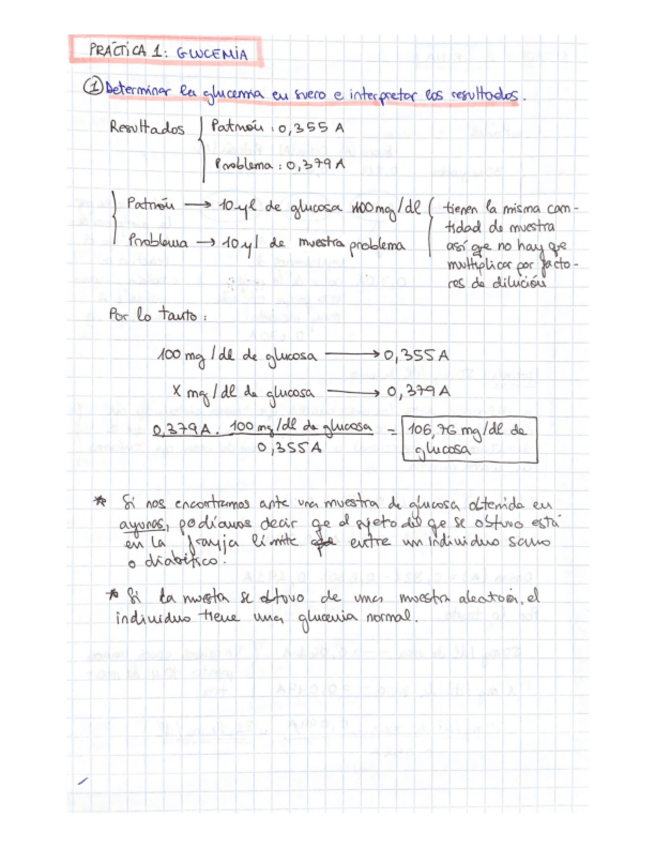 PRÁCTICA 1: GLUCEMIA
① Determinar la glucemia en suero e interpretar los resultados.
Resultados
Patrón: 0,355 A
Problema: 0,379 A
Patrón → 10 μl de glucosa 100 mg/dl
Problema → 10 μl de muestra problema
tienen la misma can-
tidad de muestra
así qe no hay que
multiplicar por facto-
res de dilución
Por lo tanto:
100 mg/dl de glucosa → 0,355 A
X mg/dl de glucosa → 0,379 A
0,379 A . 100 mg/dl de glucosa
0,355 A
= 106,76 mg/dl de
glucosa
* Si nos encontramos ante una muestra de glucosa obtenida en
ayunas, podíamos decir qe el sujeto del qe se obtuvo está
en la franja límite entre un individuo sano
o diabético.
* Si la muesta se obtuvo de una muestra aleatoria, el
individuo tiene una glucemia normal.